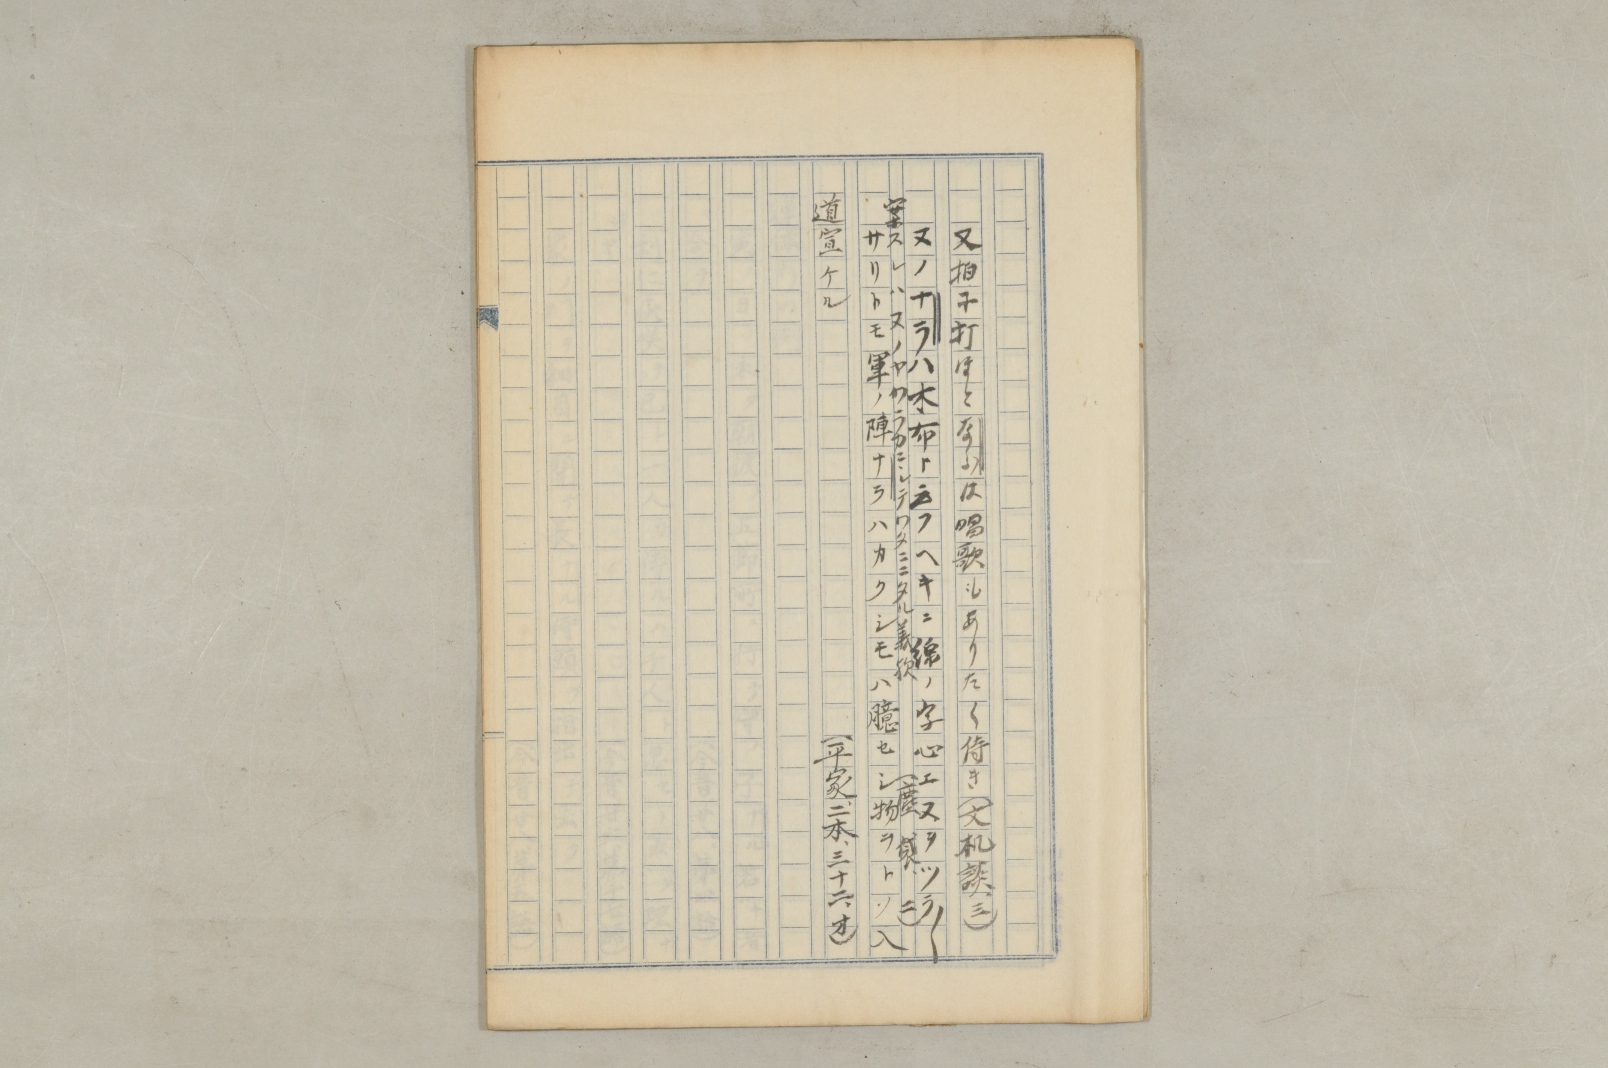 又拍子打ほとならは唱歌もありたく侍き(文机談、三)
又ノナラハ木布ト云フヘキニ綿ノ字心エヌヲツラ〱
案スレハヌノヤワラカニシテワタニニタル義歟(塵袋、二)
サリトモ軍ノ陣ナラハカクシモハ臆セシ物ヲトソ入
道宣ケル(平家、二本、三十六、オ)